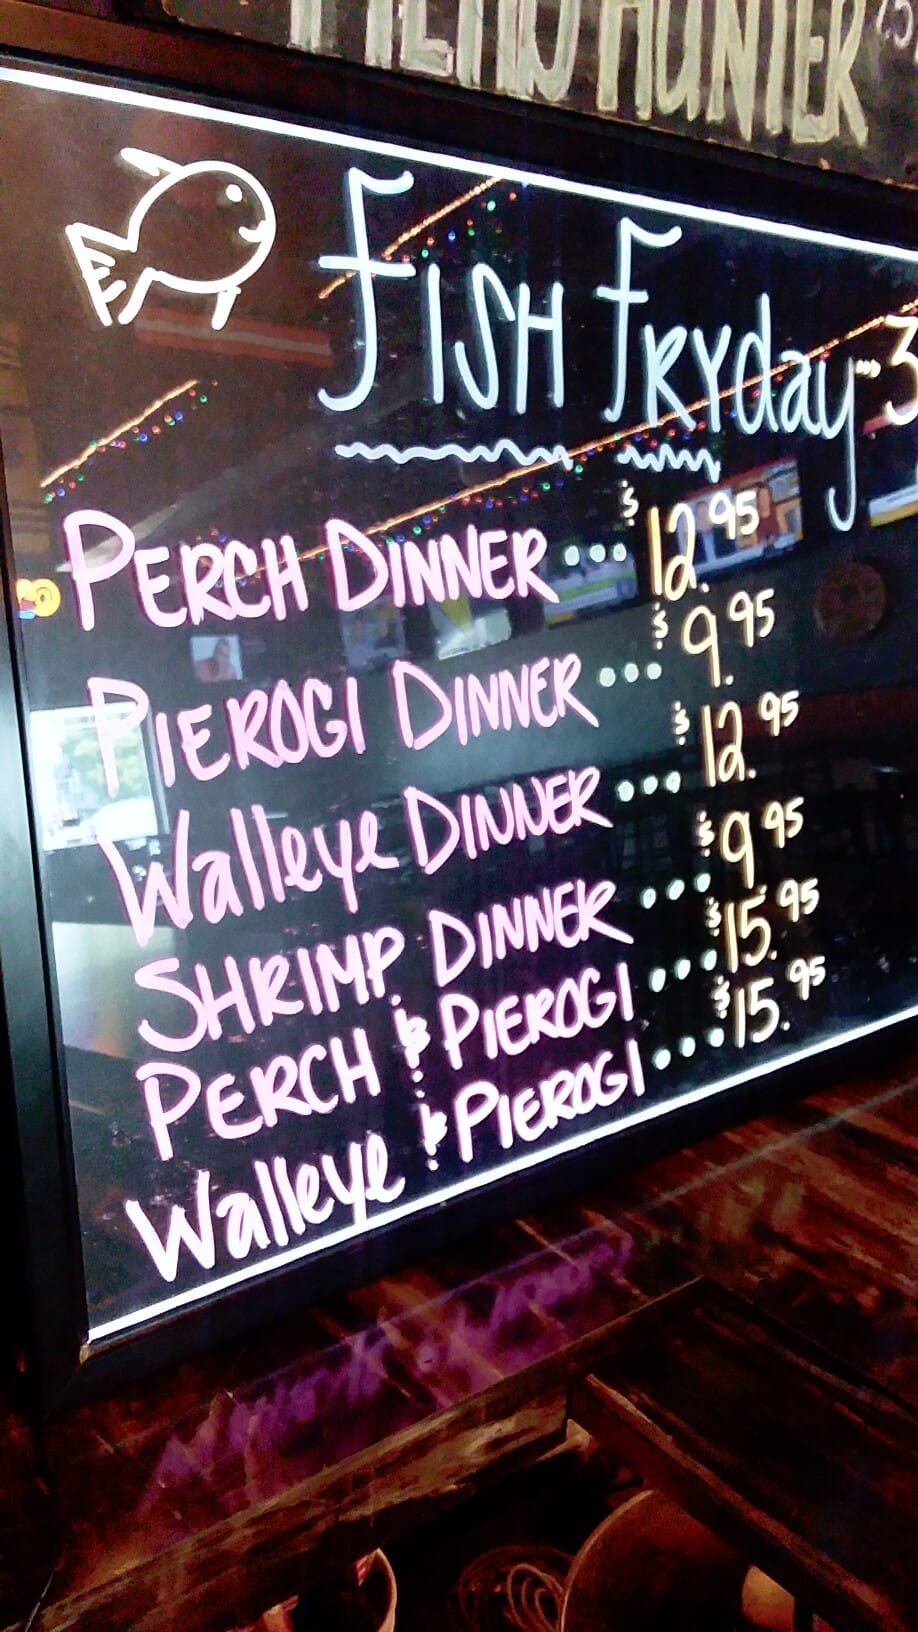 HUNTER
FISH FRYday... 3
PERCH DINNER ... $12.95
PIEROGI DINNER ... $9.95
Walleye DINNER ... $12.95
SHRIMP DINNER ... $9.95
PERCH & PIEROGI ... $15.95
Walleye & PIEROGI ... $15.95